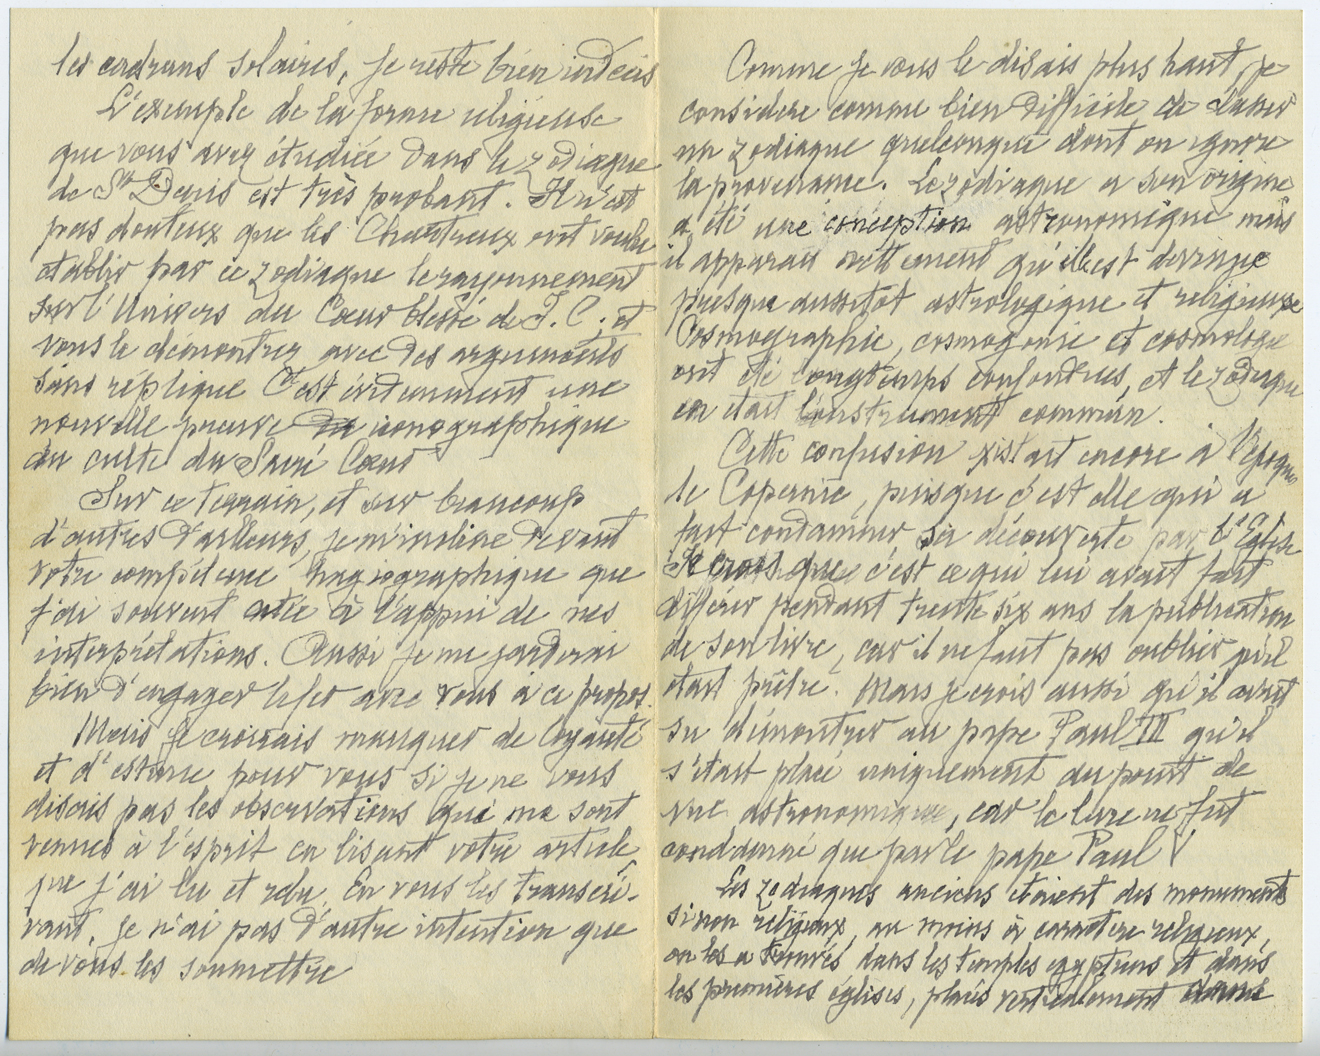 les cadrans solaires, je reste bien indécis
L'exemple de la forme religieuse
que vous avez étudiée dans le zodiaque
de St Denis est très probant. Il n'est
pas douteux que les Chartreux ont voulu
établir par ce zodiaque le rayonnement
sur l'Univers du Coeur blessé de J. C. et
vous le démontrez avec des arguments
sans réplique C'est évidemment une
nouvelle preuve iconographique
du culte du Sacré Coeur
Sur ce terrain, et sur beaucoup
d'autres d'ailleurs, je m'incline devant
votre compétence hagiographique que
j'ai souvent citée à l'appui de mes
interprétations. Aussi je me garderai
bien d'engager le fer avec vous à ce propos.
Mais je croirais manquer de loyauté
et d'estime pour vous si je ne vous
disais pas les observations qui me sont
venues à l'esprit en lisant votre article
que j'ai lu et relu. En vous les transcri-
vant, je n'ai pas d'autre intention que
de vous les soumettre
Comme je vous le disais plus haut, je
considère comme bien difficile de dater
un zodiaque quelconque dont on ignore
la provenance. Le zodiaque a son origine
a été une conception astronomique mais
il apparait nettement qu'il est devenu
presque aussitôt astrologique et religieuse
Cosmographie, cosmogonie et cosmologie
ont été longtemps confondues, et le zodiaque
en était l'instrument commun.
Cette confusion existait encore à l'époque
de Copernic, puisque c'est elle qui a
fait condamner sa découverte par l'Eglise
Je crois que c'est ce qui lui avait fait
différer pendant trente six ans la publication
de son livre, car il ne faut pas oublier qu'il
était prêtre. Mais je crois aussi qu'il avait
su démontrer au pape Paul III qu'il
s'était placé uniquement au point de
vue astronomique, car le livre ne fut
condamné que par le pape Paul V
Les zodiaques anciens étaient des monuments
sinon religieux, au moins à caractère religieux,
on les a trouvés dans les temples egyptiens et dans
les premières églises, placés verticalement dans